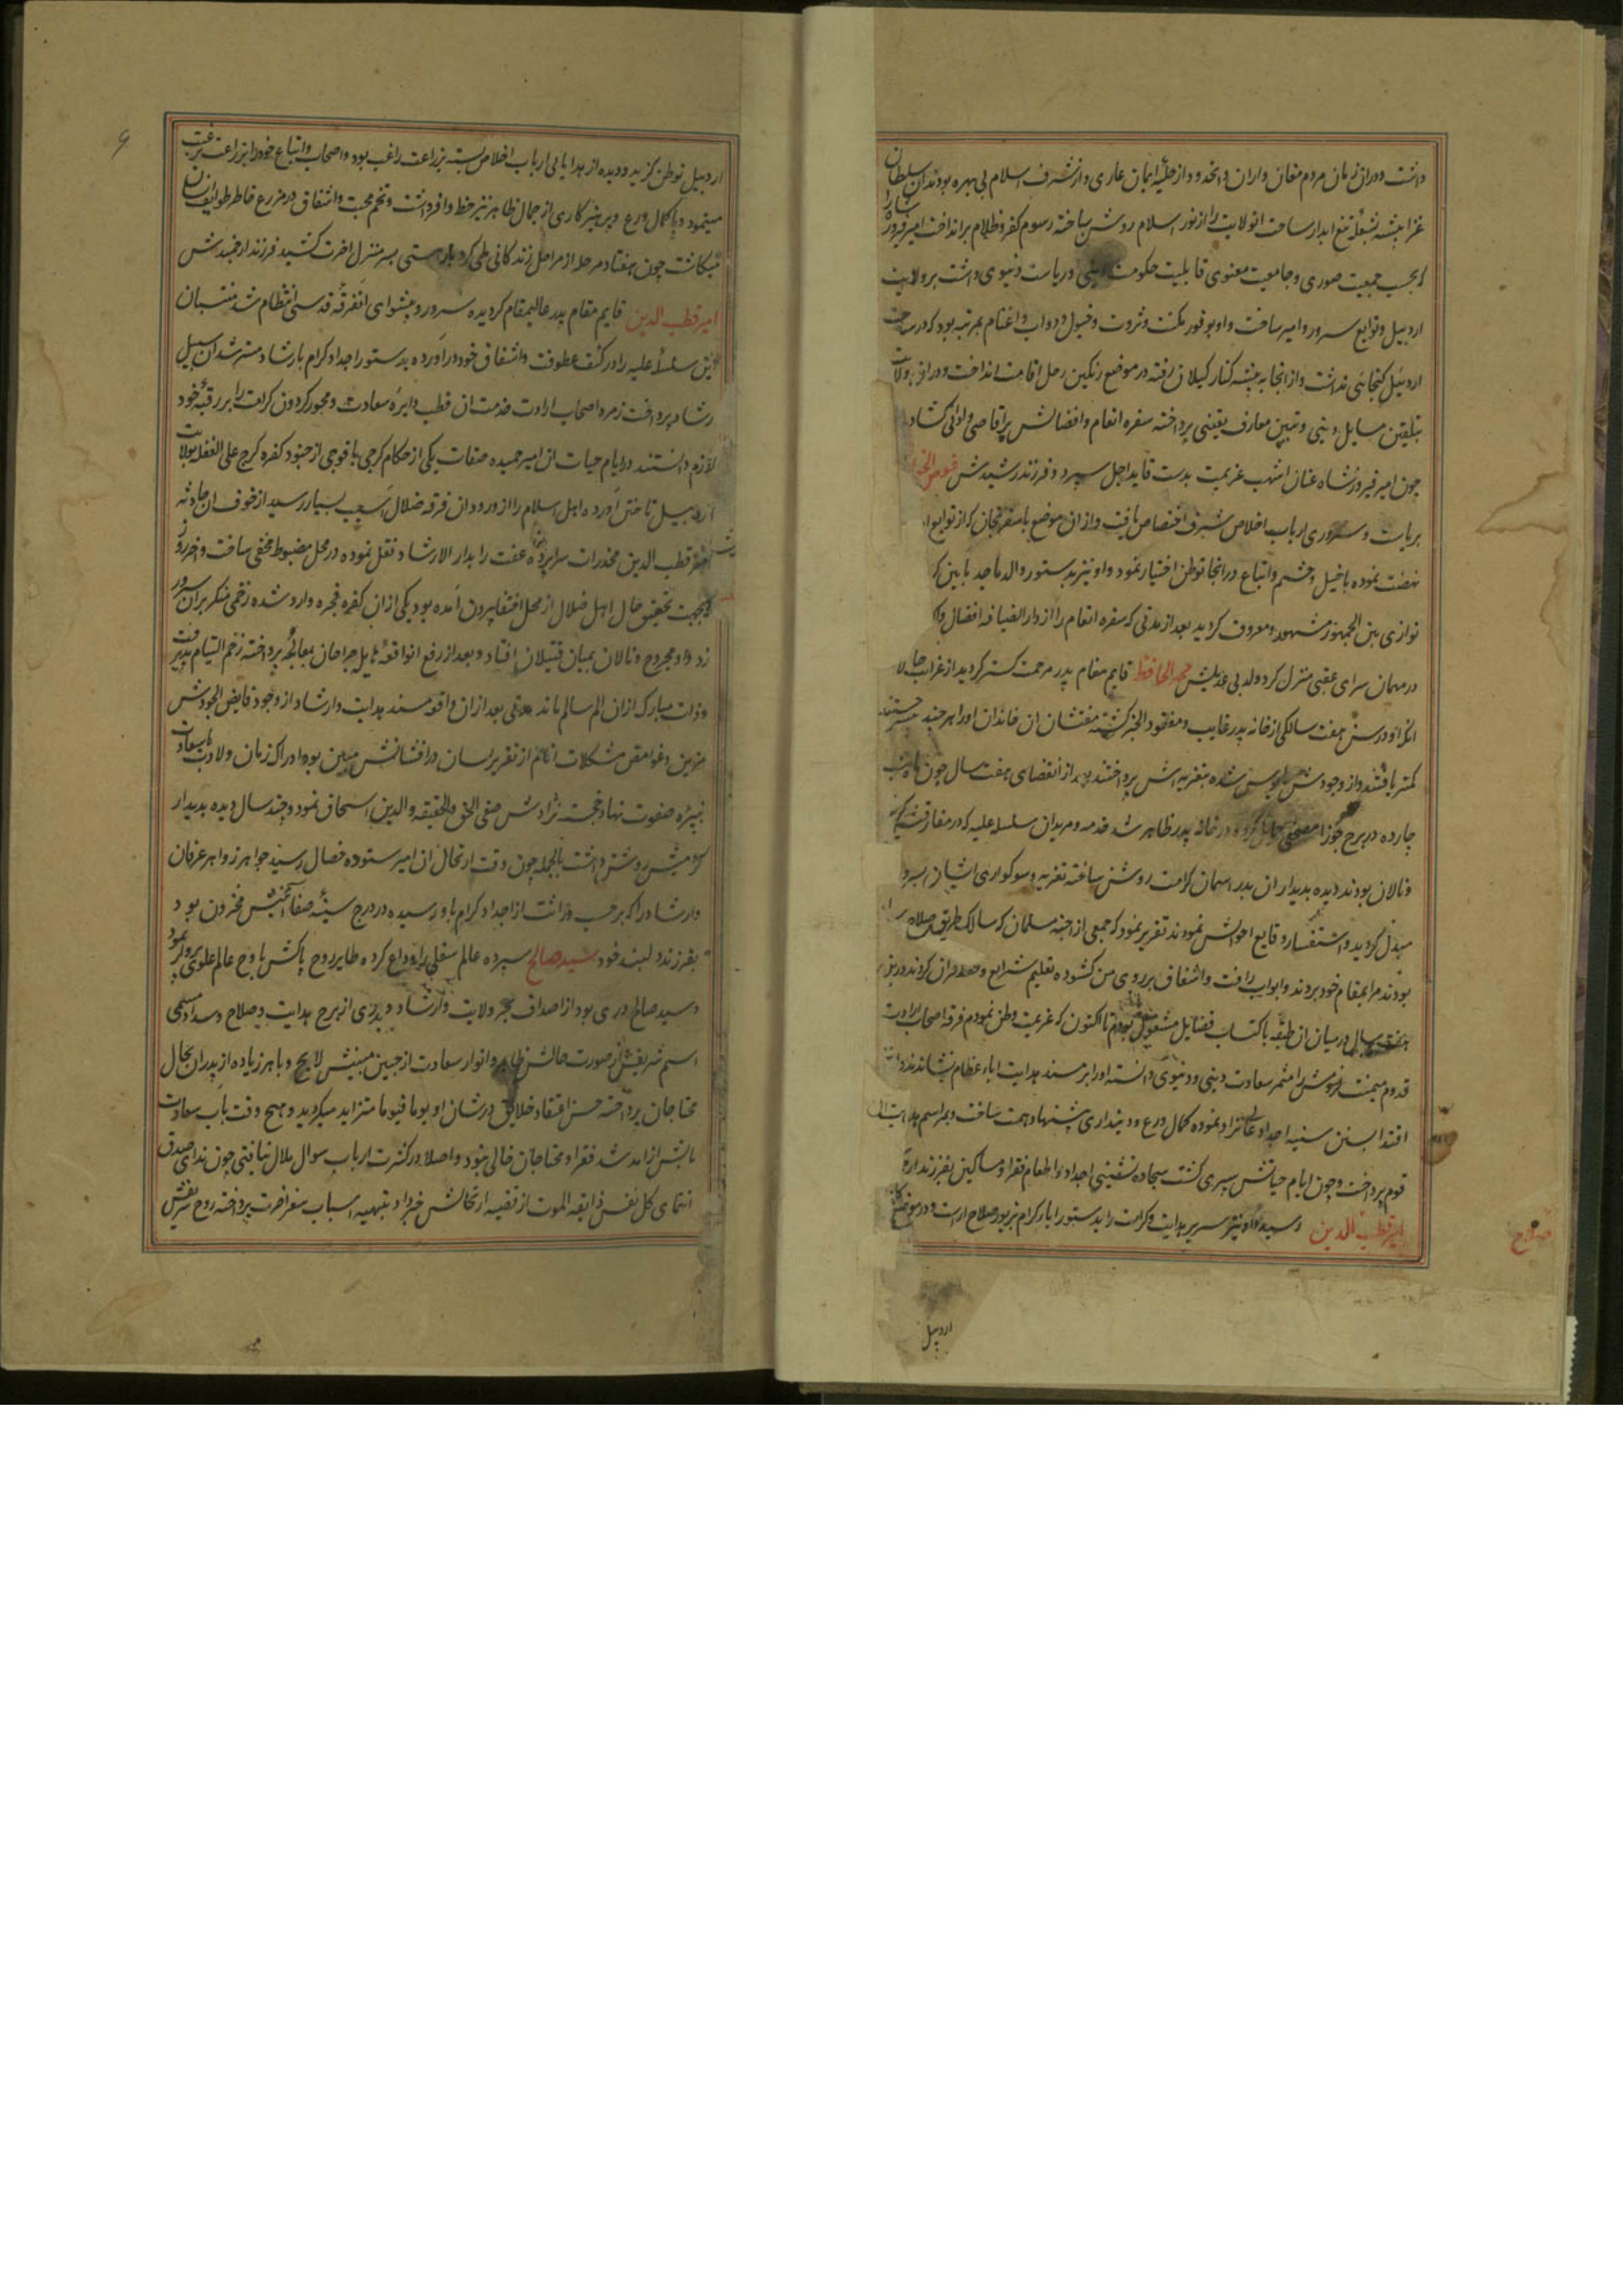 داشت و در ان زمان مردم مغان و اران و از حلیهٔ ایمان عاری و از شرف اسلام بی بهره بودند ان سلطان
غزا پیشه بشعلهٔ تیغ ابدار ساحت انولایت را از نور اسلام روشن ساخته رسوم کفر و ظلام برانداخت امیر فیروز شاه را
که بحسب جمعیت صوری و جامعیت معنوی قابلیت حکومت دینی و ریاست دنیوی داشت بر ولایت
اردبیل و توابع سرور و امیر ساخت و او بوفور مکنت و ثروت و خیول و دواب و اغنام بمرتبه بود که در ساحت
اردبیل گنجایی نداشت و از انجا به بیشه کنار گیلان رفته در موضع رنگین رحل اقامت انداخت و در ان ولایت
بتلقین مسایل دینی و تبیین معارف یقینی پرداخته سفره انعام و افضالش بر اقاصی و ادانی گشاد
چون امیر فیروز شاه عنان اشهب عزیمت بدست قاید اجل سپرد و فرزند رشیدش عوض الخواص
بریاست و سروری ارباب اخلاص شرف اختصاص یافت و از ان موضع باسفرنجان که از توابع
نهضت نموده با خیل و حشم و اتباع در انجا توطن اختیار نمود و او نیز بدستور والد ماجد بایین
نوازی بین الجمهور مشهور و معروف گردید بعد از مدتی که سفره انعام را از دار الضیافه افضال
در مهمان سرای عقبی منزل کرد ولد بی عدیلش محمد الحافظ قایم مقام پدر مرحمت گستر گردید از غرایب حالا
انکه او در سن هفت سالگی از خانه پدر غایب و مفقود الخبر گشته مفتشان ان خاندان او را هر چند جستند
کمتر یافتند و از وجودش مایوس شده بتعزیه اش پرداختند بعد از انقضای هفت سال چون ماه شب
چارده در برج جوزا مصحفی حمایل کرده در خانه پدر ظاهر شد خدمه و مریدان سلسله علیه که در مفارقتش
و نالان بودند دیده بدیدار ان بدر اسمان کرامت روشن ساخته تعزیه و سوکواری ایشان بسرور
مبدل گردید و استفسار وقایع احوالش نمودند تقریر نمود که جمعی از اجنه مسلمان که سالک طریق صلاح
بودند مرا بمقام خود بردند و ابواب رافت و اشفاق بر روی من گشوده تعلیم شرایع و حفظ قران کردند و در
هفت سال در میان ان طبقه باکتساب فضایل مشغول بودم تا اکنون که عزیمت وطن نمودم فرقه اصحاب ارادت
قدوم میمنت لزومش را مثمر سعادت دینی و دنیوی دانسته او را بر مسند هدایت اباء عظام نشاندند و او
اقتدا بسنن سنیه اجداد عالی نژاد نموده کمال ورع و دینداری پیشنهاد همت ساخت و بمراسم هدایت ان
قوم پرداخت و چون ایام حیاتش سپری گشت سجاده نشینی اجداد و اطعام فقرا و مساکین بفرزند
امیر قطب الدین رسید و او نیز سریر هدایت و کرامت را بدستور اباء کرام بزیور صلاح اراست و در موضع
صلاح
اردبیل
اردبیل توطن گزید و دیده از هدایای ارباب اخلاص بسته بزراعت راغب بود و اصحاب و اتباع خود را بزراعت ترغیب
مینمود و با کمال ورع و پرهیزکاری از جمال ظاهر نیز حظ وافر داشت و تخم محبت و اشفاق در مزرع خاطر طوایف انسان
میکاشت چون هفتاد مرحله از مراحل زندگانی طی کرد بار هستی بسر منزل اخرت کشید فرزند ارجمندش
امیر قطب الدین قایم مقام پدر عالیمقام گردیده سرور و پیشوای انفرقه قدسی انتظام شد منتسبان
این سلسلهٔ علیه را در کنف عطوفت و اشفاق خود دراورده بدستور اجداد کرام بارشاد مسترشدان سبیل
رشاد پرداخت زمره اصحاب ارادت خدمت ان قطب دایره سعادت و محور گردون کرامت را بر رقبهٔ خود
لازم دانستند در ایام حیات ان امیر حمیده صفات یکی از حکام گرجی با فوجی از جنود کفره گرج علی الغفله بولایت
اردبیل تاختن اورده اهل اسلام را از ورود ان فرقه ضلال اسیب بسیار رسید از خوف ان حادثه
امیر قطب الدین مخدرات سراپرده عفت را بدار الارشاد نقل نموده در محل مضبوط مخفی ساخت و خود روزی
که بجهت تحقیق حال اهل ضلال از محل اختفا بیرون آمده بود یکی از ان کفره فجره وارد شده زخمی منکر بر ان سرور
زد و او مجروح و نالان بمیان قتیلان افتاد و بعد از رفع انواقعهٔ هایل جراحان بمعالجه پرداخته زخم التیام پذیرفت
و ذات مبارک از ان الم سالم ماند مدتی بعد از ان واقعه مسند هدایت و ارشاد از وجود فایض الجودش
مزین و غوامض مشکلات انام از تقریر لسان در افشانش مبین بود ادراک زمان ولادت با سعادت
نبیره صفوت نهاد خجسته نژادش صفی الحق و الحقیقه و الدین اسحاق نمود و چند سال دیده بدیدار
گرامیش روشن داشت بالجمله چون وقت ارتحال ان امیر ستوده خصال رسید جواهر زواهر عرفان
و ارشاد را که برحسب وراثت از اجداد کرام باو رسیده در درج سینهٔ صفا ائینش مخزون بود
بفرزند دلبند خود سید صالح سپرده عالم سفلی را وداع کرده طایر روح پاکش باوج عالم علوی پرواز نمود
و سید صالح دری بود از اصداف بحر ولایت و ارشاد و بدری از برج هدایت و صلاح و سداد مسمی
اسم شریفش از صورت حالش ظاهر و انوار سعادت از جبین مبینش لایح و باهر زیاده از پدران بحال
محتاجان پرداخته حسن اعتقاد خلایق در شان او یوما فیوما متزاید میگردید و هیچ وقت باب سعادت
مابش از امد شد فقرا و محتاجان خالی نبود و اصلا در کثرت ارباب سوال ملال نیافتی چون ندای صدق
انتمای کل نفس ذایقه الموت از قضیه ارتحالش خبر داد بتهیه اسباب سفر اخرت پرداخته روح شریفش